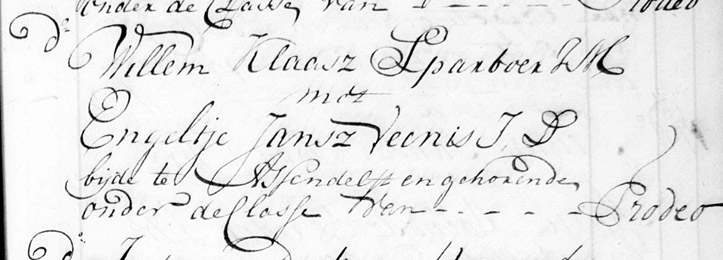 onder de Classe van - - - - - Prodeo
do Willem Klaasz Sparboer J M
met
Engeltje Jansz Veenis J. D
bijde te Assendelft en gehorende
onder de Classe van - - - - - Prodeo
do